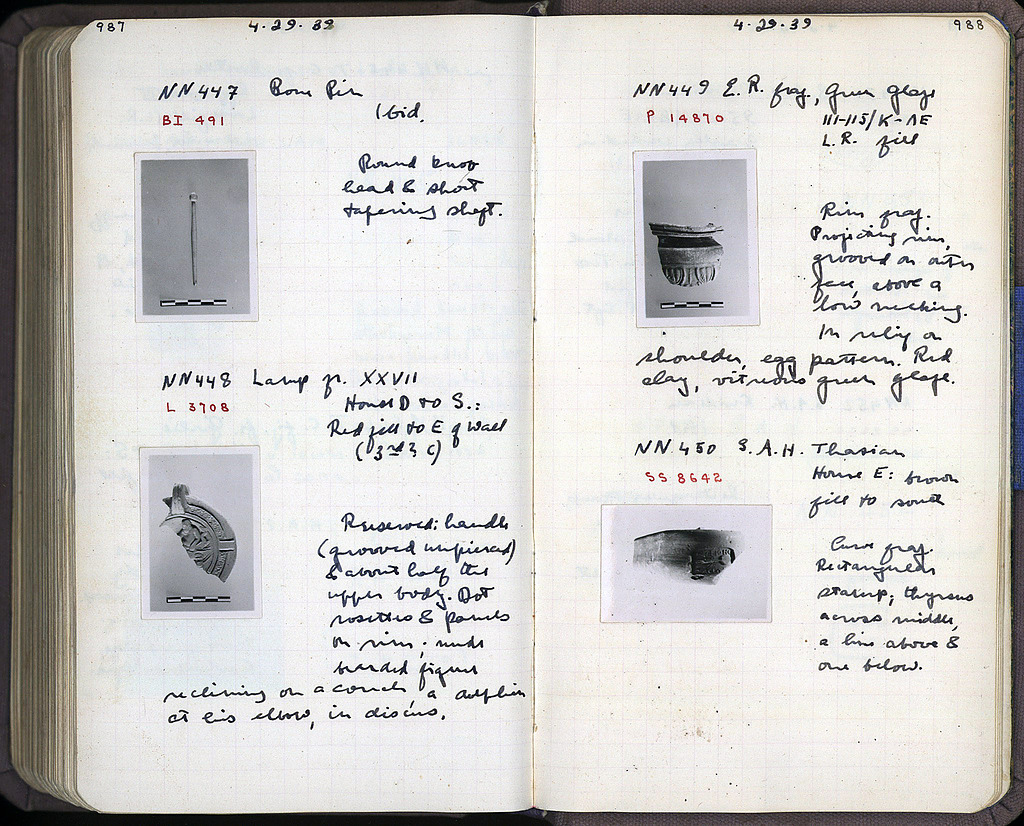 987
4-29-39
NN447 Bone Pin
Ibid.
BI 491
Round knob
head & short
tapering shaft.
NN448 Lamp fr. XXVII
L 3708
House D to S.:
Red fill to E of Wall
(3rd ? C)
Preserved: handle
(grooved unpierced)
& about half the
upper body. Dot
rosettes & panels
on rim; nude
bearded figure
reclining on a couch a dolphin
at his elbow, in discus.
4-29-39
988
NN449 E.R. frag., Green glaze
P 14870
111-115/K-ΛE
L.R. fill
Rim frag.
Projecting rim,
grooved on outer
face, above a
low necking.
In relief on
shoulder, egg pattern. Red
clay, vitreous green glaze.
NN450 S.A.H. Thasian
SS 8642
House E: brown
fill to south
Curve frag.
Rectangular
stamp; thyrsus
across middle,
a line above &
one below.